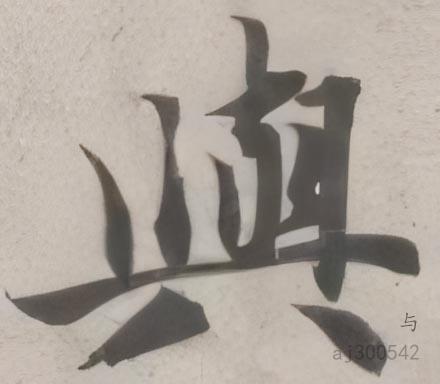 與
与
aj300542